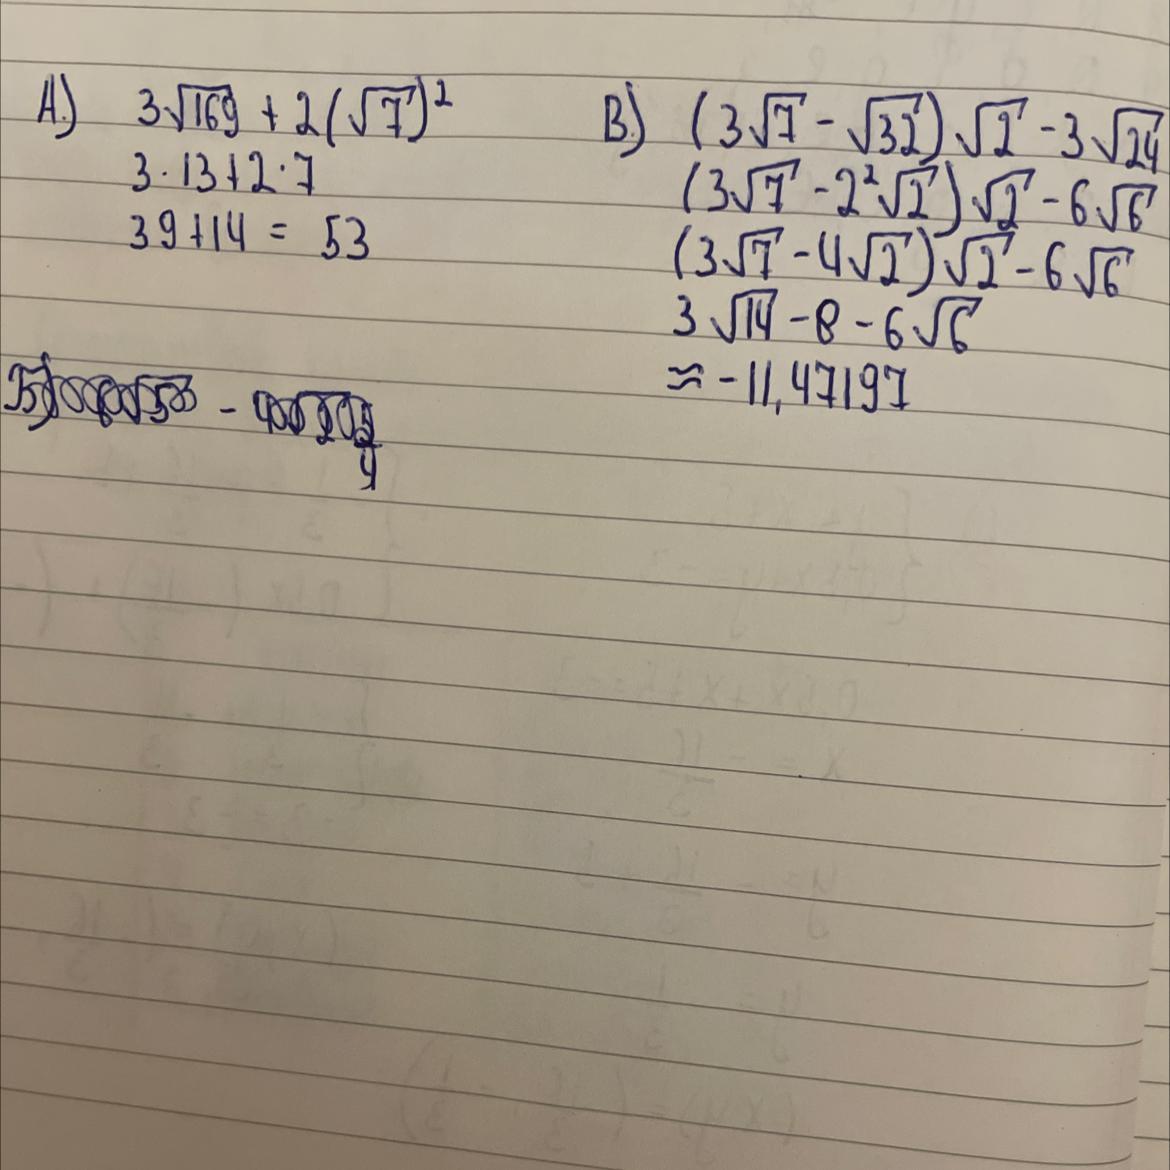 A.) 3√169 + 2(√7)²
3·13+2·7
39+14 = 53
B.) (3√7 - √32)√2 - 3√24
(3√7 - 2²√2)√2 - 6√6
(3√7 - 4√2)√2 - 6√6
3√14 - 8 - 6√6
≈ -11,47197